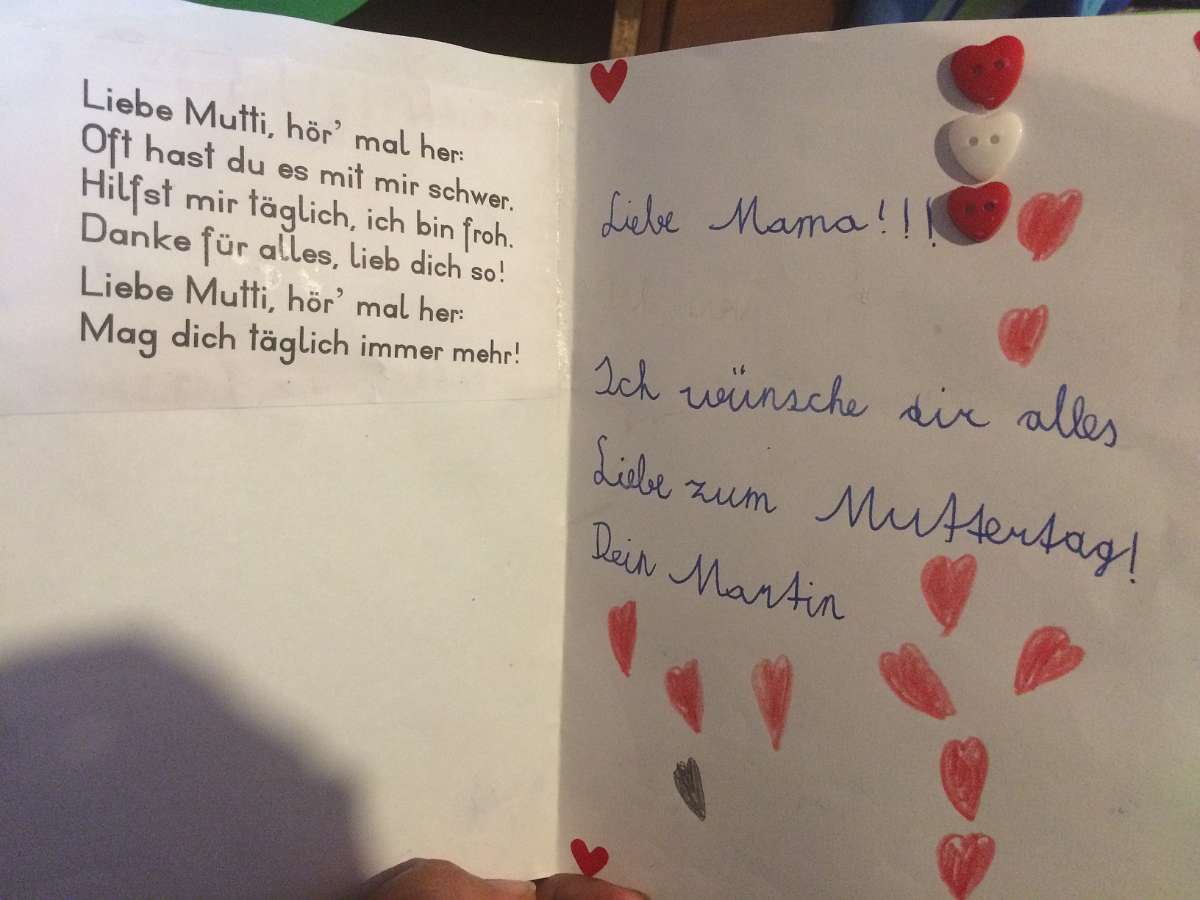 Liebe Mutti, hör’ mal her:
Oft hast du es mit mir schwer.
Hilfst mir täglich, ich bin froh.
Danke für alles, lieb dich so!
Liebe Mutti, hör’ mal her:
Mag dich täglich immer mehr!
Liebe Mama!!!
Ich wünsche dir alles
Liebe zum Muttertag!
Dein Martin